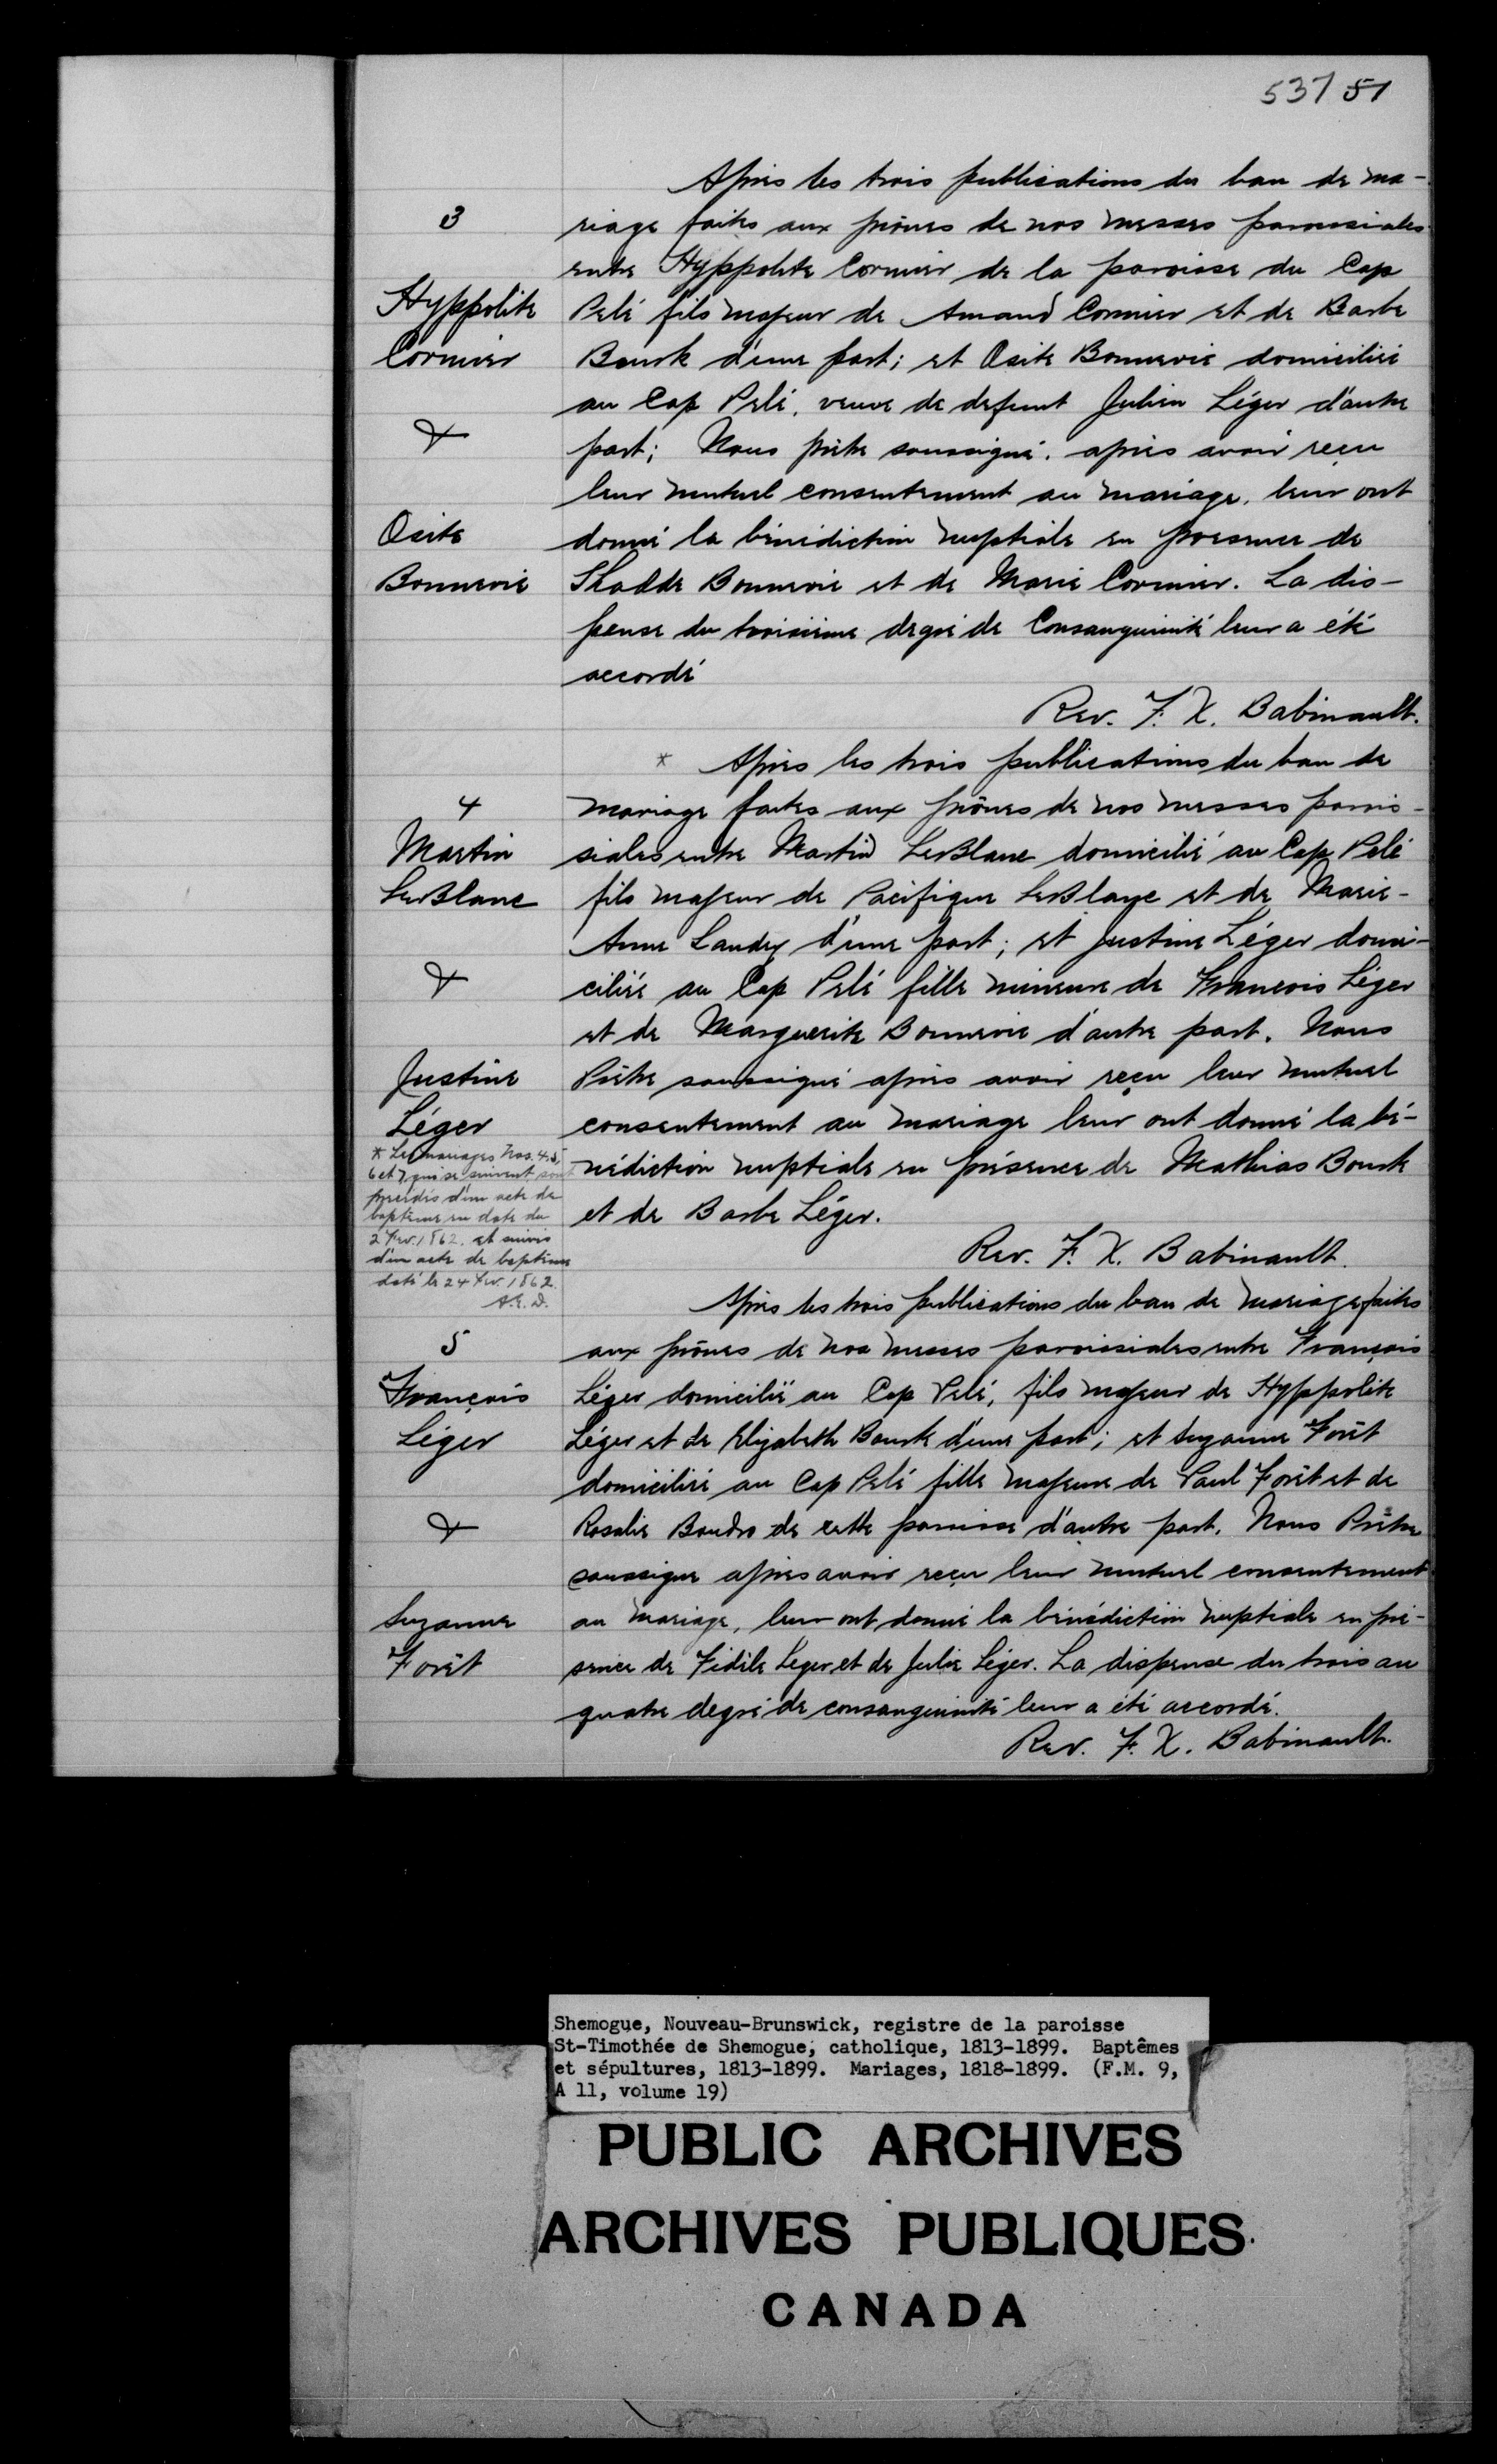 537 51
Après les trois publications du ban de ma-
3
riage faites aux prônes de nos messes paroissiales
entre Hyppolite Cormier de la paroisse du Cap
Hyppolite
Pelé fils majeur de Amand Cormier et de Barbe
Cormier
Bourk d'une part; et Osite Bonnevie domiciliée
au Cap Pelé, veuve de defunt Julien Léger d'autre
&
part; Nous prêtre soussigné, après avoir reçu
leur mutuel consentement au mariage, leur ont
Osite
donné la bénédiction nuptiale en presence de
Bonnevie
Thadde Bonnevie et de Marie Cormier. La dis-
pense du troisième degré de Consanguinité leur a été
accordé
Rev. F. X. Babinault.
* Après les trois publications du ban de
4
mariage faites aux prônes de nos messes parois-
Martin
siales entre Martin LeBlanc domicilié au Cap Pelé
LeBlanc
fils majeur de Pacifique LeBlanc et de Marie-
Anne Landry d'une part; et Justine Léger domi-
&
ciliée au Cap Pelé fille mineure de Francois Léger
et de Marguerite Bonnevie d'autre part. Nous
Justine
Prêtre soussigné après avoir reçu leur mutuel
Léger
consentement au mariage leur ont donné la bé-
nédiction nuptiale en présence de Mathias Bourk
et de Barbe Léger.
* Les mariages Nos. 4, 5,
6 et 7 qui se suivent sont
précédés d'un acte de
baptême en date du
2 Fev. 1862. et suivis
d'un acte de baptême
daté le 24 Fev. 1862.
A.E.D.
Rev. F. X. Babinault.
Après les trois publications du ban de mariage faites
5
aux prônes de nos messes paroissiales entre François
François
Léger domicilié au Cap Pelé, fils majeur de Hyppolite
Léger
Léger et de Elizabeth Bourk d'une part; et Suzanne Forêt
domiciliée au Cap Pelé fille majeure de Paul Forêt et de
&
Rosalie Boudro de cette paroisse d'autre part. Nous Prêtre
soussigné après avoir reçu leur mutuel consentement
Suzanne
au mariage, leur ont donné la bénédiction nuptiale en pré-
Forêt
sence de Fidèle Leger et de Julie Léger. La dispense du trois au
quatre degré de consanguinité leur a été accordé.
Rev. F. X. Babinault.
Shemogue, Nouveau-Brunswick, registre de la paroisse
St-Timothée de Shemogue, catholique, 1813-1899. Baptêmes
et sépultures, 1813-1899. Mariages, 1818-1899. (F.M. 9,
A 11, volume 19)
PUBLIC ARCHIVES
ARCHIVES PUBLIQUES
CANADA